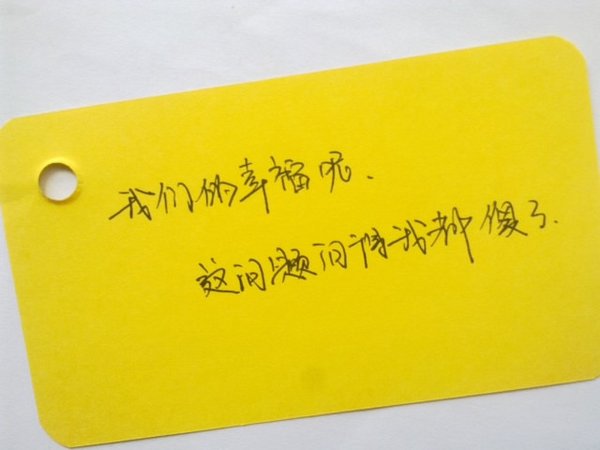 我们的幸福呢、
这问题问得我都傻了.